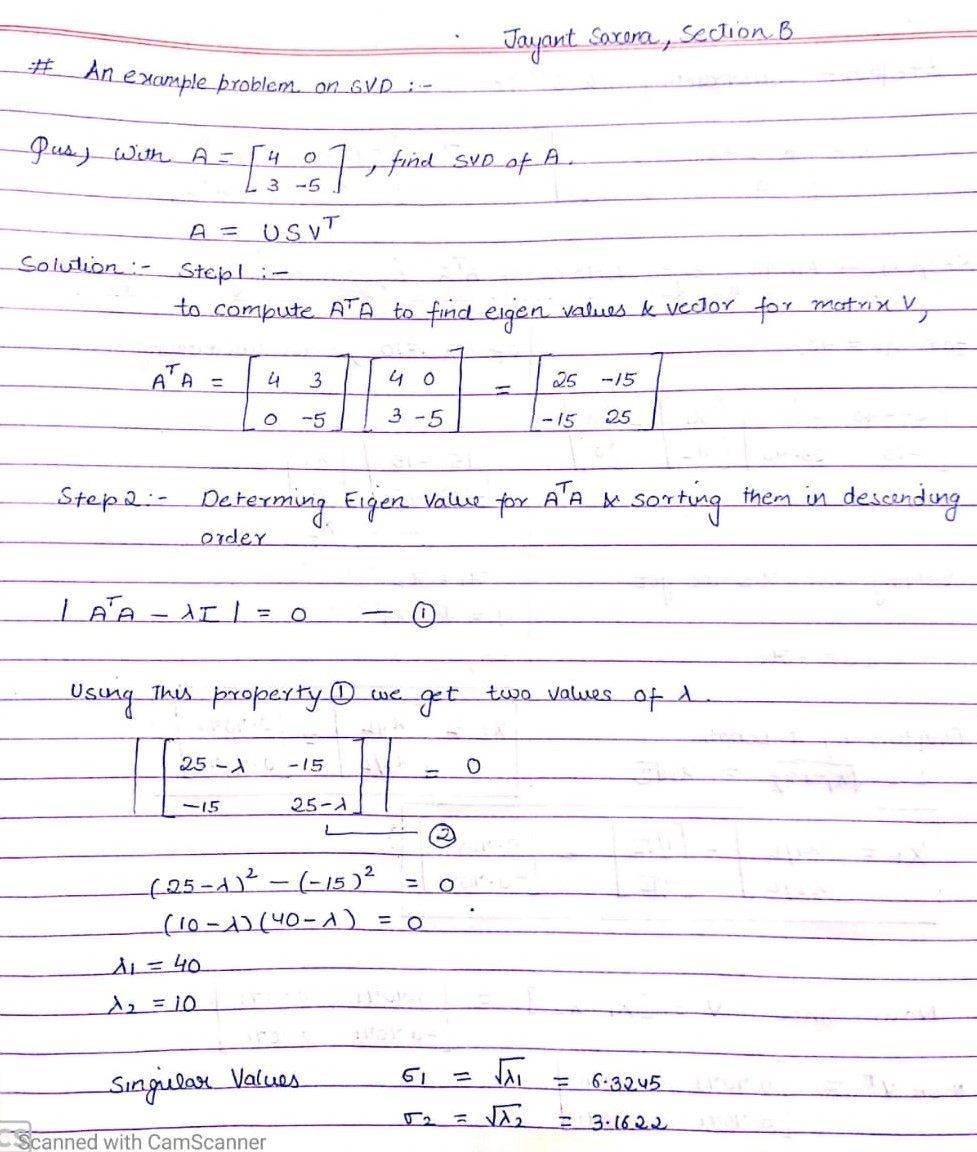 Jayant Saxena, Section B
# An example problem on SVD :-
Ques) With A = [4 0 , find SVD of A.
3 -5]
A = USVᵀ
Solution :- Step 1 :-
to compute AᵀA to find eigen values & vector for matrix V,
AᵀA = [4 3] [4 0] = [25 -15]
[0 -5] [3 -5] [-15 25]
Step 2 :- Determing Eigen Value for AᵀA & sorting them in descending
order
| AᵀA - λI | = 0 — ①
Using This property ① we get two values of λ.
|[25-λ -15]| = 0
|[-15 25-λ]|
②
(25-λ)² - (-15)² = 0
(10-λ)(40-λ) = 0
λ₁ = 40
λ₂ = 10
Singular Values σ₁ = √λ₁ = 6.3245
σ₂ = √λ₂ = 3.1622
CS Scanned with CamScanner